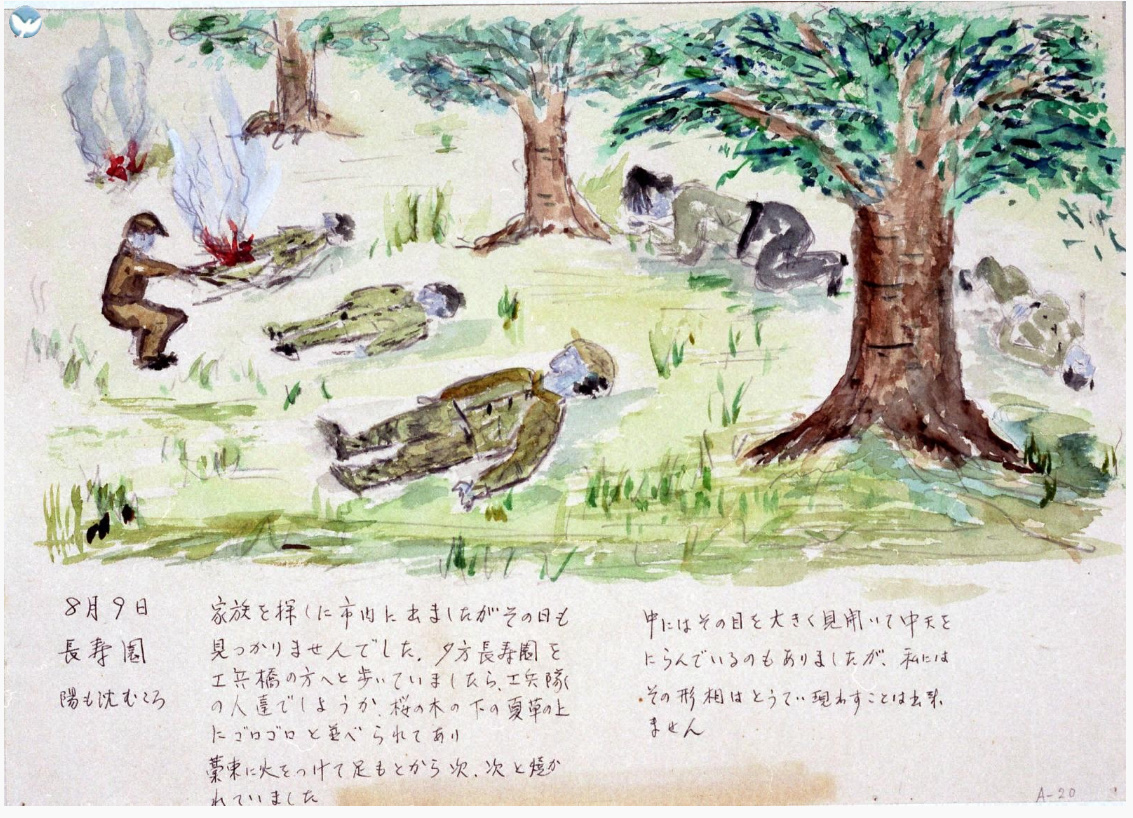 8月9日
長寿園
陽も沈むころ
家族を探しに市内に出ましたがその日も
見つかりませんでした。夕方長寿園を
工兵橋の方へと歩いていましたら、工兵隊
の人達でしようか、桜の木の下の夏草の上
にゴロゴロと並べられてあり
藁束に火をつけて足もとから次、次と焼か
れていました
中にはその目を大きく見開いて中天を
にらんでいるのもありましたが、私には
その形相はとうてい現わすことは出来
ません
A-20